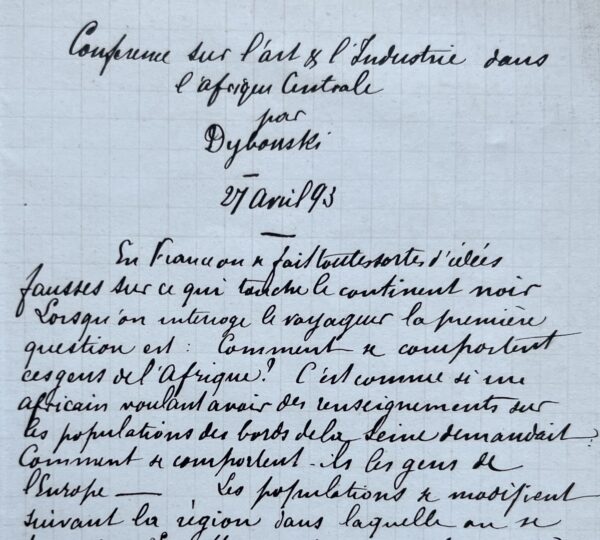 Conference sur l'art & l'Industrie dans
l'afrique Centrale
par
Dybowski
27 Avril 93
En France on se fait toutes sortes d'idées
fausses sur ce qui touche le continent noir
Lorsqu'on interroge le voyageur la première
question est : Comment se comportent
ces gens de l'Afrique ? C'est comme si un
africain voulant avoir des renseignements sur
les populations des bords de la Seine demandait :
Comment se comportent-ils les gens de
l'Europe — Les populations se modifient
suivant la région dans laquelle on se